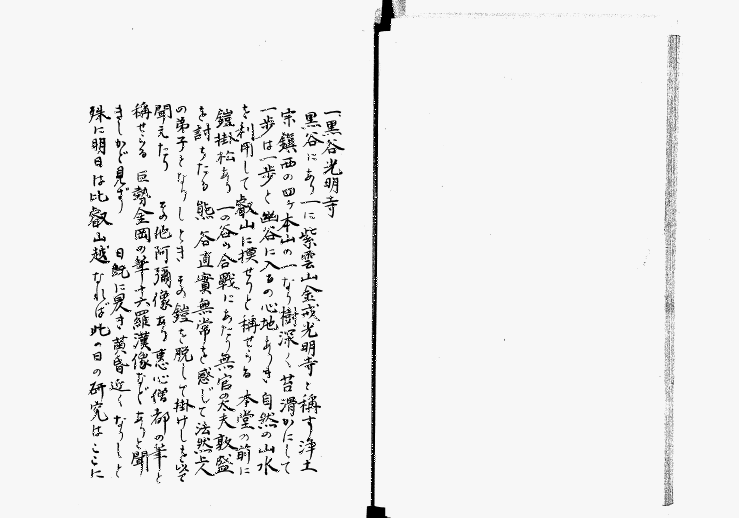 一黒谷光明寺
黒谷にあり一に紫雲山金戒光明寺と稱す浄土
宗鎮西の四ヶ本山の一なり樹深く苔滑かにして
一歩は一歩と幽谷に入るの心地ありき自然の山水
を利用して叡山に摸せりと稱せらる 本堂の前に
鎧掛松あり 一の谷の合戰にあたり無官の太夫敦盛
を討ちたる熊谷直實無常を感じて法然上人
の弟子となりしとき その鎧を脱して掛けしを以て
聞えたり その他阿彌像あり 惠心僧都の筆と
稱せらる 巨勢金岡の筆十六羅漢像などありと聞
きしかど見ず 日既に昃き黄昏近くなりしと
殊に明日は比叡山越なれば此の日の研究はここに